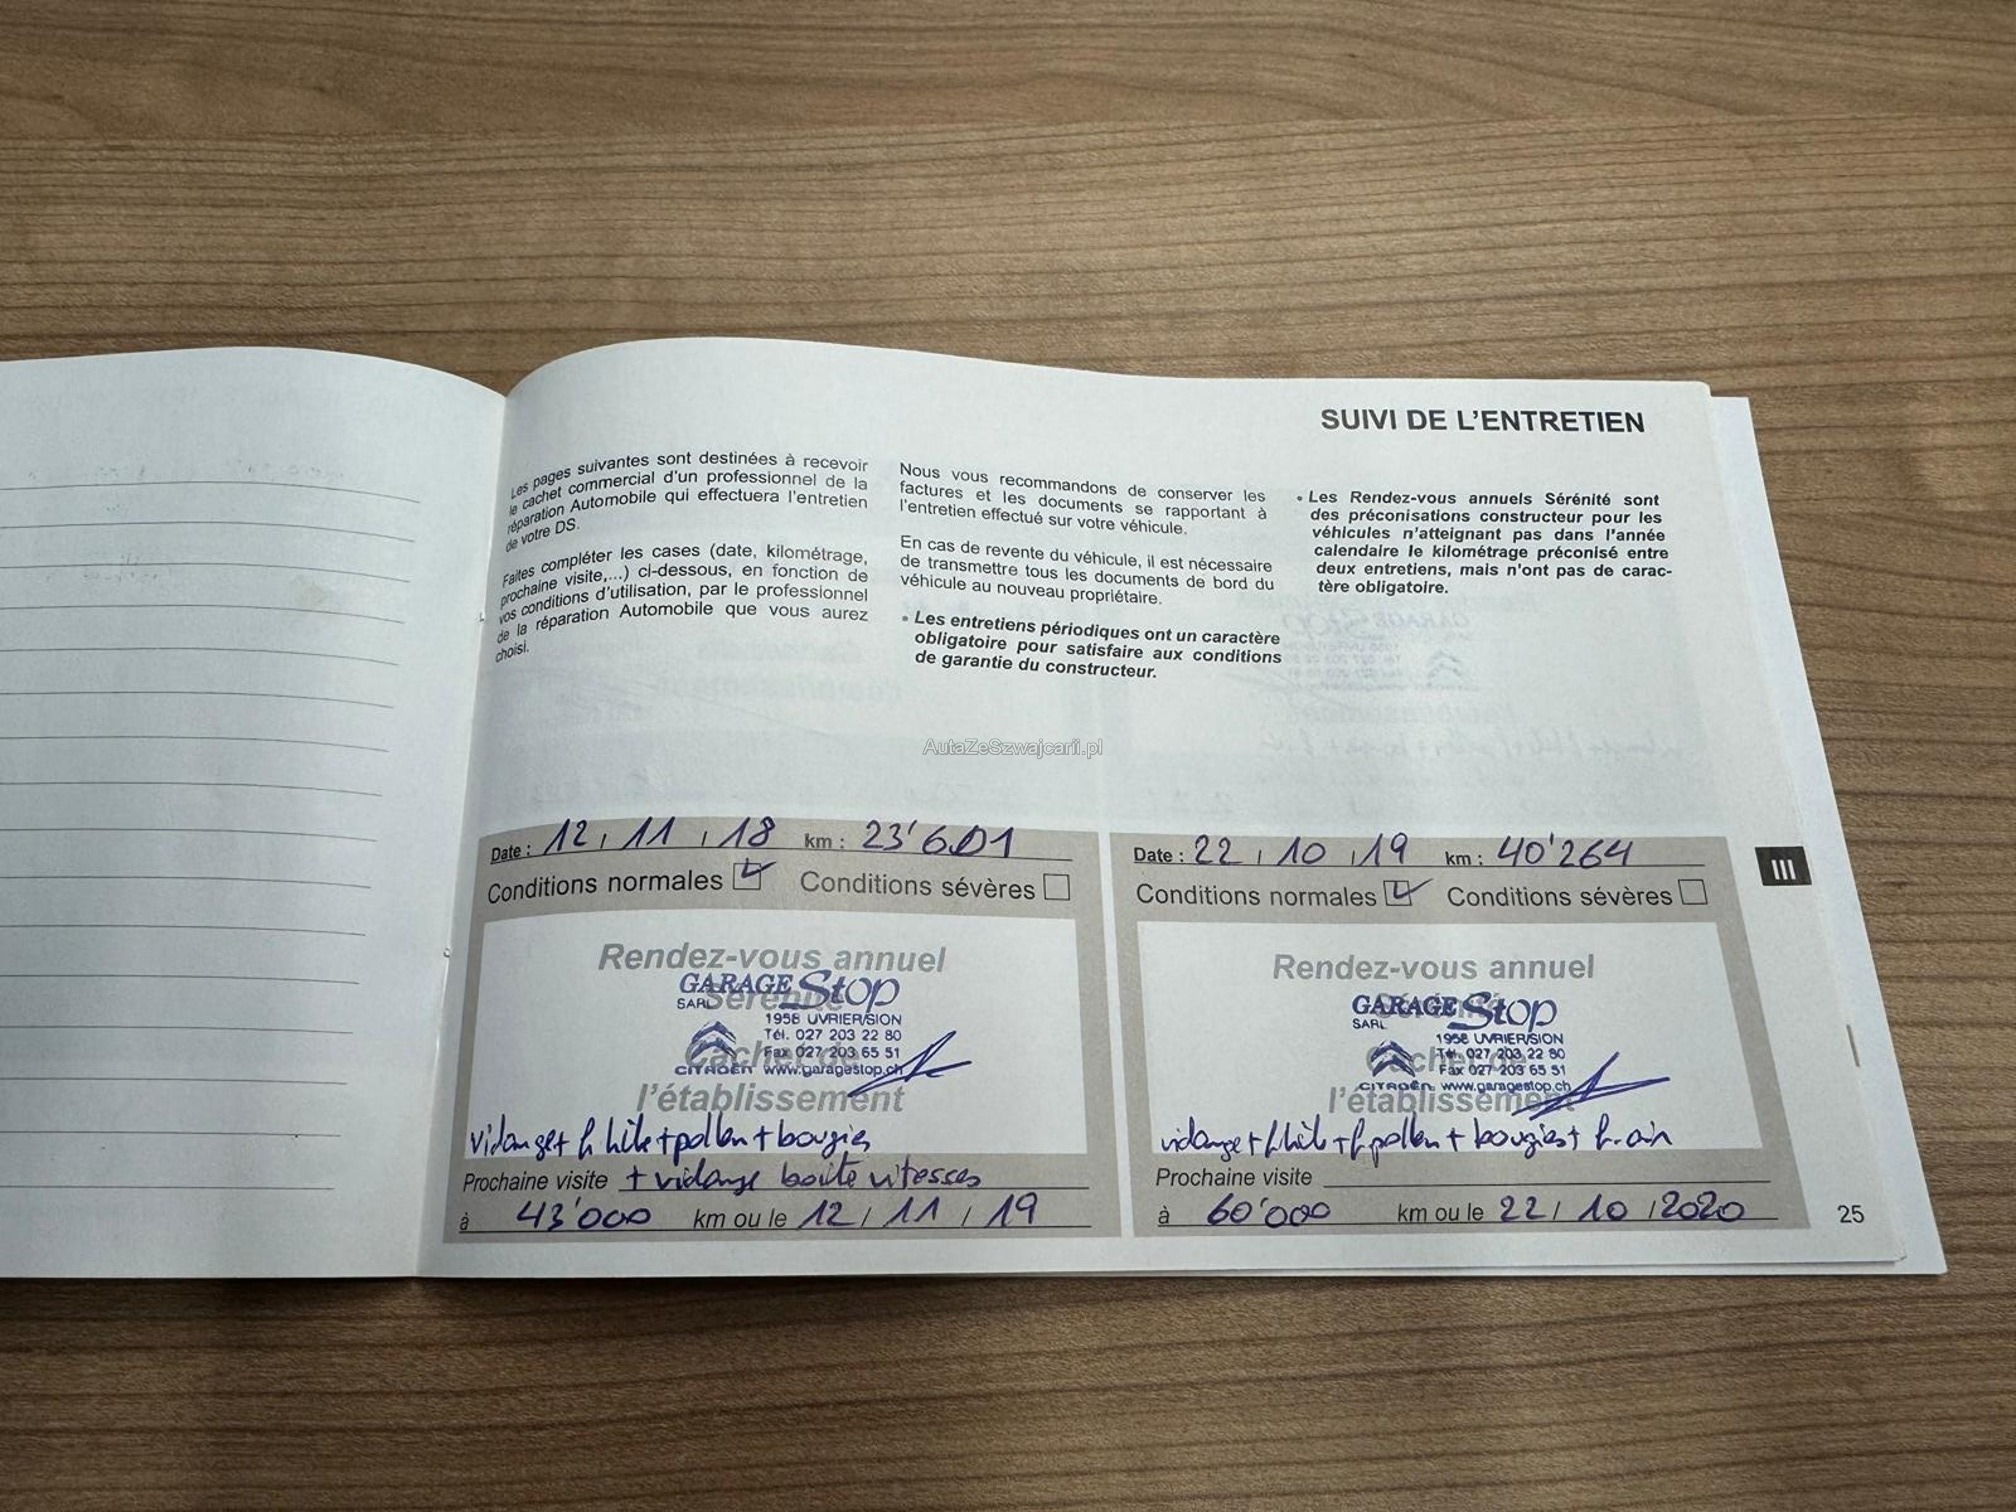 SUIVI DE L'ENTRETIEN
Les pages suivantes sont destinées à recevoir
le cachet commercial d'un professionnel de la
réparation Automobile qui effectuera l'entretien
de votre DS.
Faites compléter les cases (date, kilométrage,
prochaine visite,...) ci-dessous, en fonction de
vos conditions d'utilisation, par le professionnel
de la réparation Automobile que vous aurez
choisi.
Nous vous recommandons de conserver les
factures et les documents se rapportant à
l'entretien effectué sur votre véhicule.
En cas de revente du véhicule, il est nécessaire
de transmettre tous les documents de bord du
véhicule au nouveau propriétaire.
• Les entretiens périodiques ont un caractère
obligatoire pour satisfaire aux conditions
de garantie du constructeur.
• Les Rendez-vous annuels Sérénité sont
des préconisations constructeur pour les
véhicules n'atteignant pas dans l'année
calendaire le kilométrage préconisé entre
deux entretiens, mais n'ont pas de carac-
tère obligatoire.
AutaZeSzwajcarii.pl
Date : 12 / 11 / 18 km : 23'601
Conditions normales Conditions sévères
Rendez-vous annuel
Sérénité
GARAGE Stop
SARL
1958 UVRIER/SION
Tél. 027 203 22 80
Cachet de
Fax 027 203 65 51
CITROËN www.garagestop.ch
l'établissement
vidange + f. huile + pollen + bougies
Prochaine visite + vidange boite vitesses
à 43'000 km ou le 12 / 11 / 19
Date : 22 / 10 / 19 km : 40'264
Conditions normales Conditions sévères
Rendez-vous annuel
Sérénité
GARAGE Stop
SARL
1958 UVRIER/SION
Tél. 027 203 22 80
Cachet de
Fax 027 203 65 51
CITROËN www.garagestop.ch
l'établissement
vidange + f. huile + f. pollen + bougies + f. air
Prochaine visite
à 60'000 km ou le 22 / 10 / 2020
III
25